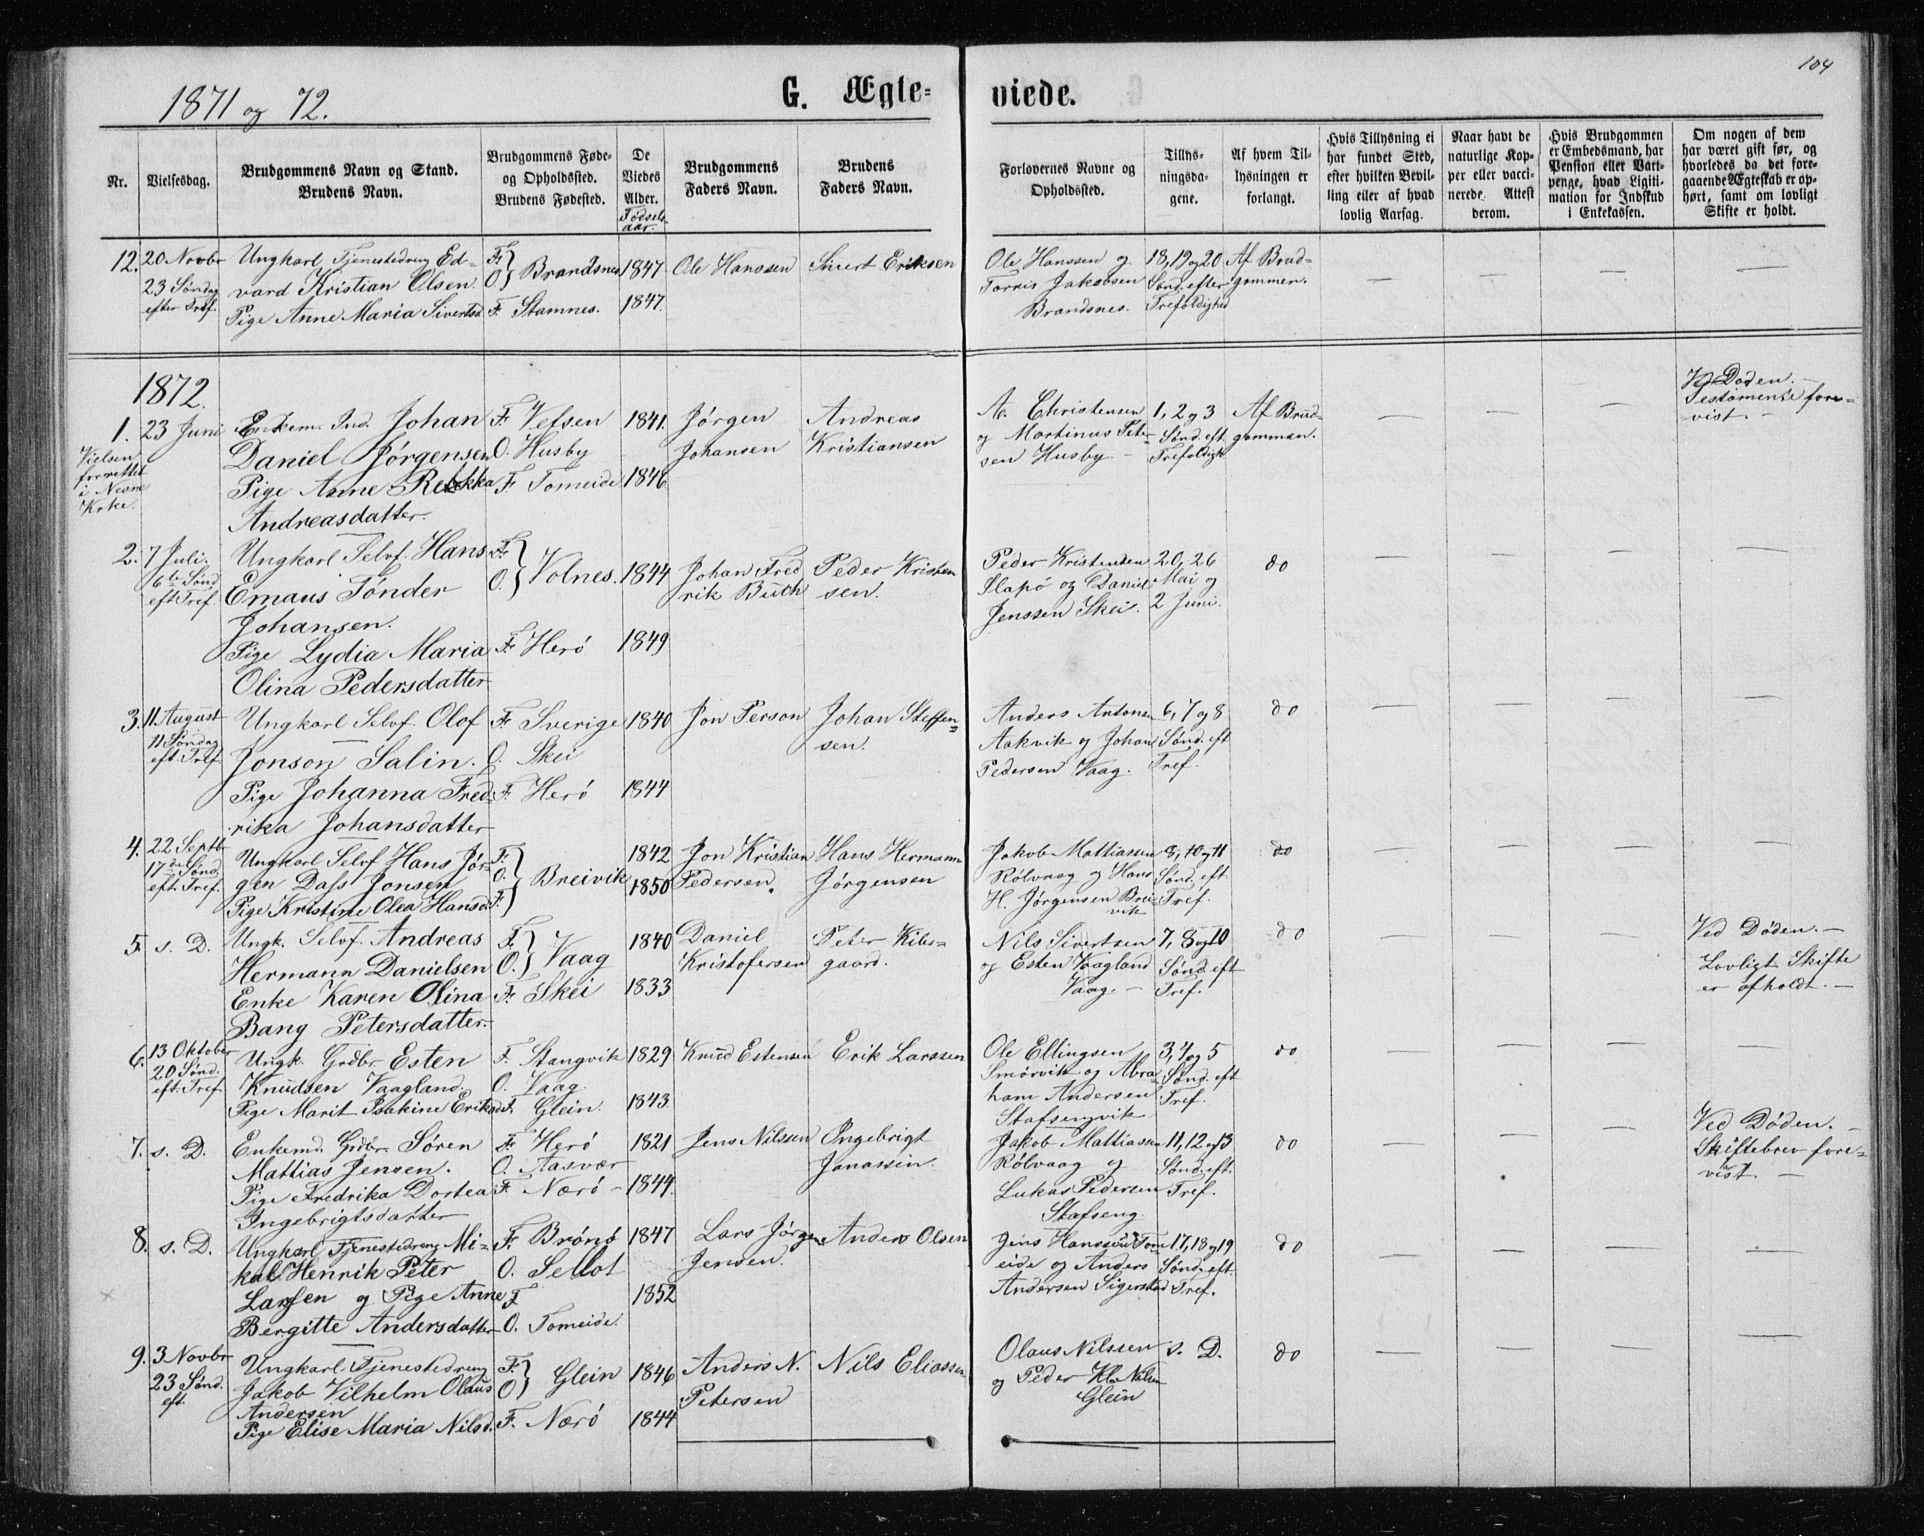 104
1871 og 72.
G. Ægte-
viede.
Nr.
Vielsesdag.
Brudgommens Navn og Stand.
Brudens Navn.
Brudgommens Føde-
og Opholdsted.
Brudens Fødested.
De
Viedes
Alder.
Fødsels
aar.
Brudgommens
Faders Navn.
Brudens
Faders Navn.
Forlovernes Navne og
Opholdsted.
Tillys-
ningsda-
gene.
Af hvem Til-
lysningen er
forlangt.
Hvis Tillysning ei
har fundet Sted,
efter hvilken Bevil-
ling eller af hvad
lovlig Aarsag.
Naar havt de
naturlige Kop-
per eller vacci-
nerede. Attest
derom.
Hvis Brudgommen
er Embedsmand, har
Pension eller Vart-
penge, hvad Ligiti-
mation for Indskud
i Enkekassen.
Om nogen af dem
har været gift før, og
hvorledes da det fore-
gaaende Ægteskab er op-
hørt, samt om lovligt
Skifte er holdt.
12. 20 Novbr Ungkarl Tjenestedreng Ed- F. } Brandsnes 1847 Ole Hanssen Sivert Eriksen Ole Hanssen og 18, 19 og 20 Af Brud-
23 Søndag vard Kristian Olsen. O. Jakobsen Sønd. efter gommen.
efter Tref. Pige Anne Maria Sivertsd F. Stamnes. 1847. Brandsnes. Trefoldighed
1872.
1. 23 Juni Enkem. Ind. Johan F. Vefsen 1841. Jørgen Andreas A. Christensen 1, 2 og 3 Af Brud- Ved Døden. –
Vielsen Daniel Jørgensen O. Husby Johansen Kristiansen og Martinus Peter- Sønd. eft gommen. Testamente fore-
forrettet Pige Anne Rebekka F. Tomeide 1846 sen Husby. – Trefoldigh vist –
i Nesne Andreasdatter.
Krke.
2. 7 Juli. Ungkarl Selvf. Hans F. } Volnes. 1844 Johan Fred Peder Kristen Peder Kristensen 20, 26 do
6te Sønd Emaus Tønder O. rik Buth sen. og Daniel Mai og
eft Tref. Johansen. Jenssen Skei. 2 Juni.
Pige Lydia Maria F. Herö 1849
Olina Pedersdatter
3. 11 August Ungkarl Selvf. Olof F. Sverige 1840 Jon Person Johan Steffen- Anders Antonsen 6, 7 og 8 do
11 Søndag Jonson Salin. O. Skei sen. Aakvik og Johan Sønd. eft
eft. Tref Pige Johanna Fred- F. Herö 1844 Pedersen Vaag. Tref.
rika Johansdatter
4. 22 Septb Ungkarl Selvf Hans Jør- F. } Breivik 1842 Jon Kristian Hans Hermann Jakob Mattiassen 8, 10 og 11 do
17de Sønd gen Dass Jonsen O. 1850 Pedersen. Jørgensen Rölvaag og Hans Sønd. eft.
eft Tref. Pige Kristine Olea Hansd F. H. Jørgensen Brei- Tref.
vik
5. s. D. Ungk. Selvf. Andreas F. } Vaag 1840 Daniel Peter Kibs- Nils Sivertsen 7, 8 og 10 do Ved Døden. –
Hermann Danielsen O. Kristofersen gaard. og Esten Vaagland Sønd. eft Lovligt Skifte
Enke Karen Olina F. Skei 1833 Vaag. – Tref. er afholdt. –
Bang Petersdatter.
6. 13 Oktober Ungk. Grdbr. Esten F. Stangvik 1829 Knud Estensen Erik Larssen Ole Ellingsen 3, 4 og 5 do
20 Sønd. Knudsen Vaagland O. Vaag. Smörvik og Abra- Sønd. eft
eft. Tref. Pige Marit Erikad F. Glein. 1843. ham Andersen Tref.
Stafsengvik
7. s. D. Enkemd. Grdbr. Søren F. Herö 1821 Jens Nilssen Ingebrigt Jakob Mattiassen 11, 12 og 13 do Ved Døden. –
Mattias Jensen. O. Aasvær Janassen. Rölvaag og Sønd. eft. Skiftebrev fore-
Pige Fredrika Dortea F. Nærö – 1849. Lukas Pedersen Tref. vist –
Ingebrigtsdatter Stafseng.
8. s. D. Ungkarl Tjenestedreng Mi- F. Brönö 1847 Lars Jørgen Anders Olsen Jens Hanssen Tom- 17, 18 og 19 do
kal Henrik Peter O. Sellot Jensen. eide og Anders Sønd. eft.
Larssen og Pige Anne F. 1852 Andersen Sigerstad Tref.
Bergitte Andersdatter O. Tomeide.
9. 3 Novbr Ungkarl Tjenestedreng F. } Glein 1846 Anders N. Nils Eliassen Olaus Nilssen s. D. do
23 Sønd. Jakob Vilhelm Olaus O. Petersen og Peder Kl. Nilsen
eft. Andersen Glein
Pige Elise Maria Nilsd. F. Nærö 1844